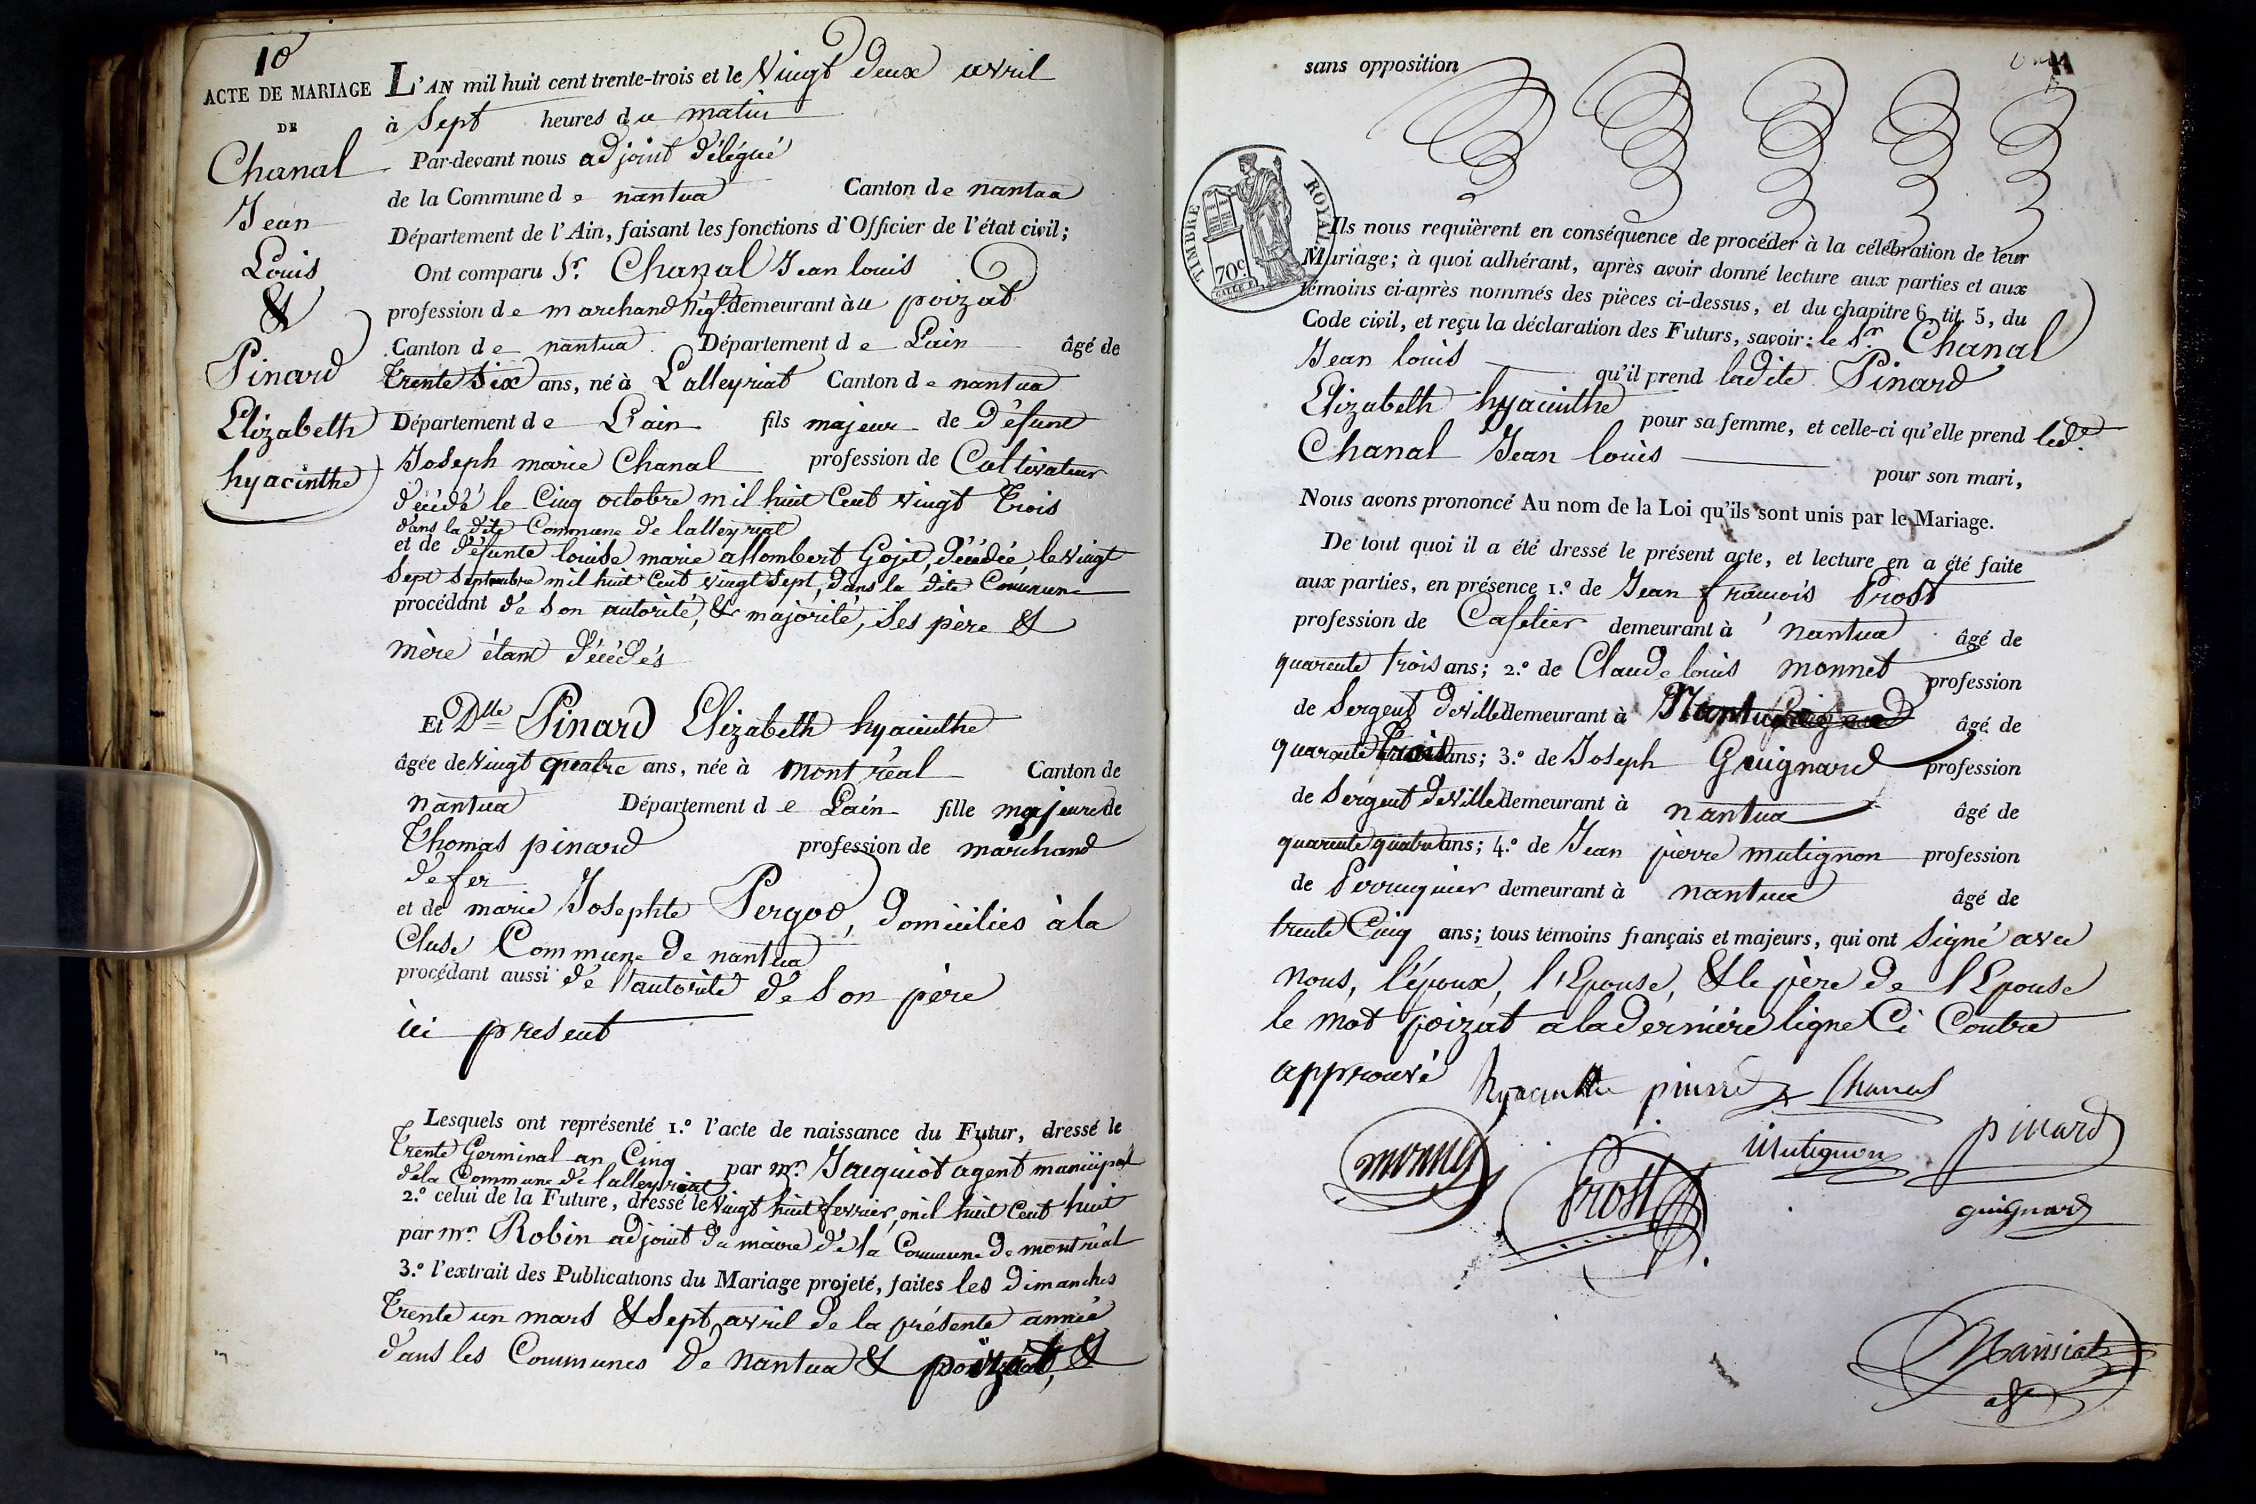 10
ACTE DE MARIAGE
DE
Chanal
Jean
Louis
&
Pinard
Elizabeth
hyacinthe
L'AN mil huit cent trente-trois et le Vingt Deux avril
à Sept heures du matin
Par-devant nous adjoint délégué
de la Commune de nantua Canton de nantua
Département de l'Ain, faisant les fonctions d'Officier de l'état civil;
Ont comparu Sr. Chanal Jean louis
profession de marchand Négt. demeurant àu poizat
Canton de nantua Département de L'ain âgé de
trente Six ans, né à Lalleyriat Canton de nantua
Département de L'ain fils majeur de défunt
Joseph marie Chanal profession de Cultivateur
décédé le Cinq octobre mil huit Cent vingt trois
dans la dite Commune de lalleyriat
et de défunte louise marie allombert Gojet, décédée le vingt
Sept Septembre mil huit Cent vingt Sept, dans la dite Commune
procédant de Son autorité, & majorité, Ses père &
mère étant décédés
Et Dlle Pinard Elizabeth hyacinthe
âgée de vingt quatre ans, née à mont réal Canton de
nantua Département de L'ain fille majeure de
Thomas pinard profession de marchand
de fer
et de marie Josephte Pergod, domiciliés à la
Cluse Commune de nantua
procédant aussi de l'autorité de Son père
ici présent
Lesquels ont représenté 1.º l'acte de naissance du Futur, dressé le
trente Germinal an Cinq par mr. Jacquiot agent municipal
de la Commune de lalleyriat
2.º celui de la Future, dressé le vingt huit fevrier, mil huit Cent huit
par mr. Robin adjoint du maire de la Commune de montréal
3.º l'extrait des Publications du Mariage projeté, faites les dimanches
trente un mars & Sept avril de la présente année
dans les Communes de Nantua & poizat, &
sans opposition
11
TIMBRE ROYAL
70c
Ils nous requièrent en conséquence de procéder à la célébration de leur
Mariage; à quoi adhérant, après avoir donné lecture aux parties et aux
témoins ci-après nommés des pièces ci-dessus, et du chapitre 6, tit. 5, du
Code civil, et reçu la déclaration des Futurs, savoir: le Sr. Chanal
Jean louis qu'il prend ladite Pinard
Elizabeth hyacinthe pour sa femme, et celle-ci qu'elle prend led.
Chanal Jean louis pour son mari,
Nous avons prononcé Au nom de la Loi qu'ils sont unis par le Mariage.
De tout quoi il a été dressé le présent acte, et lecture en a été faite
aux parties, en présence 1.º de Jean françois Prost
profession de Cafetier demeurant à nantua âgé de
quarente trois ans; 2.º de Claude louis monnet profession
de Sergent de ville demeurant à Nantua âgé de
quarente trois ans; 3.º de Joseph Guignard profession
de Sergent de ville demeurant à nantua âgé de
quarente quatre ans; 4.º de Jean pierre mutignon profession
de Perruquier demeurant à nantua âgé de
trente Cinq ans; tous témoins français et majeurs, qui ont Signé avec
nous, l'époux, l'Epouse, & le père de l'Epouse
le mot poizat a la dernière ligne Ci Contre
approuvé
hyacinthe pinard Chanal
monnet Prost Mutignon pinard
guignard